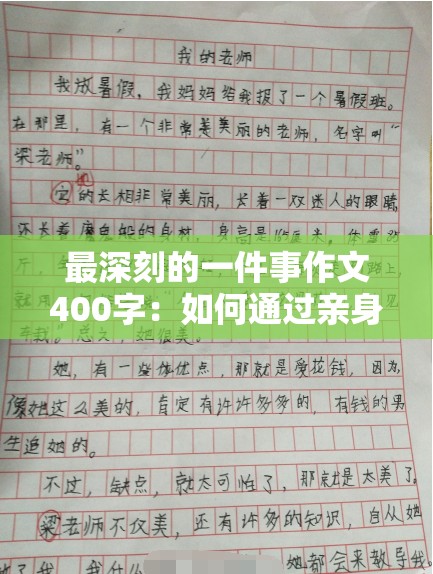 我的老师
我放暑假，我妈妈给我报了一个暑假班。
在那里，有一个非常是美丽的老师，名字叫“
梁老师。”
她
它的长相非常美丽，长着一双迷人的眼睛
还长着魔鬼般的身材，身高是
最深刻的一件事作文
400字：如何通过亲身
她很美。
她，有一些体优点，那就是爱花钱，因为，
像她这么美的，肯定有许许多多的，有钱的男
生追她的。
不过，缺点，就太可怕了，那就是太美了。
梁老师不仅美，还有许多的知识，自从她
了我，我什么 她都会来教导我。